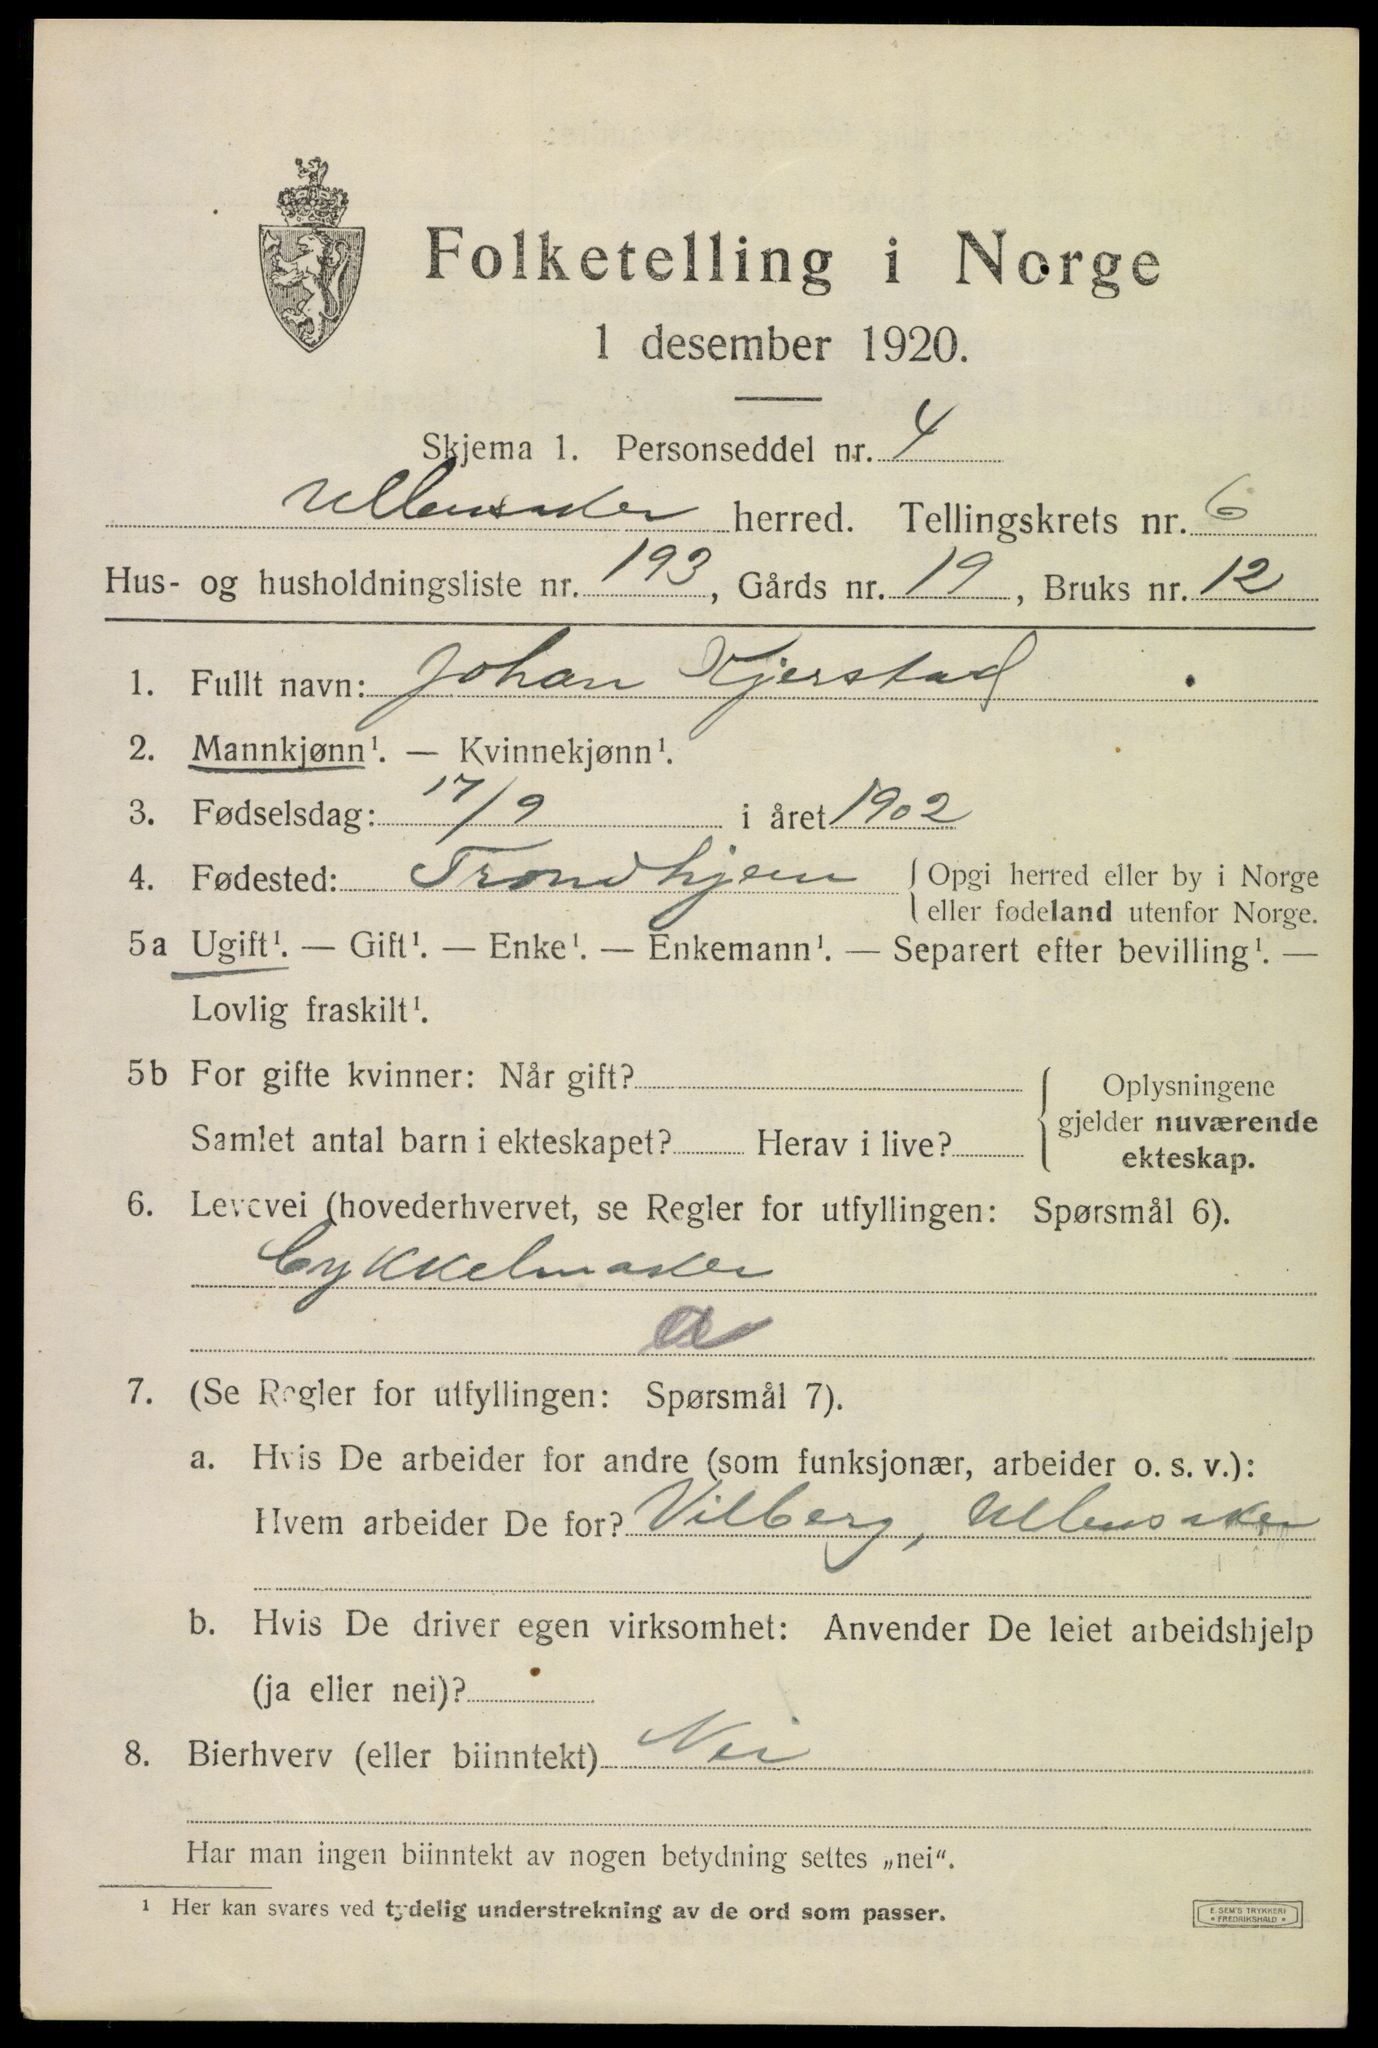 Folketelling i Norge
1 desember 1920.
Skjema 1. Personseddel nr. 4
Ullensaker herred. Tellingskrets nr. 6
Hus- og husholdningsliste nr. 193, Gårds nr. 19, Bruks nr. 12
1. Fullt navn: Johan Kjerstad
2. Mannkjønn¹. — Kvinnekjønn¹.
3. Fødselsdag: 17/9 i året 1902
4. Fødested: Trondhjem { Opgi herred eller by i Norge
eller fødeland utenfor Norge.
5a Ugift¹. — Gift¹. — Enke¹. — Enkemann¹. — Separert efter bevilling¹. —
Lovlig fraskilt¹.
5b For gifte kvinner: Når gift?
Samlet antal barn i ekteskapet? Herav i live?
{ Oplysningene
gjelder nuværende
ekteskap.
6. Levevei (hovederhvervet, se Regler for utfyllingen: Spørsmål 6).
Cykkelmaker
a
7. (Se Regler for utfyllingen: Spørsmål 7).
a. Hvis De arbeider for andre (som funksjonær, arbeider o. s. v.):
Hvem arbeider De for? Vilberg, Ullensaker
b. Hvis De driver egen virksomhet: Anvender De leiet arbeidshjelp
(ja eller nei)?
8. Bierhverv (eller biinntekt) Nei
Har man ingen biinntekt av nogen betydning settes „nei“.
¹ Her kan svares ved tydelig understrekning av de ord som passer.
E. SEM'S TRYKKERI
* FREDRIKSHALD *